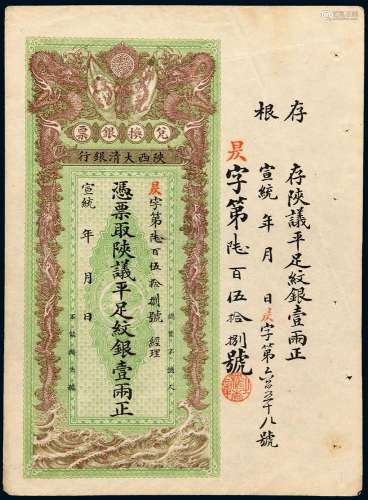 存根
存陝議平足紋銀壹兩正
宣統 年 月 日 昃字第六百五十八號
昃字第陸百伍拾捌號
兌換銀票
陝西大清銀行
昃字第陸百伍拾捌號 經理
憑票取陝議平足紋銀壹兩正
宣統 年 月 日
認票不認人